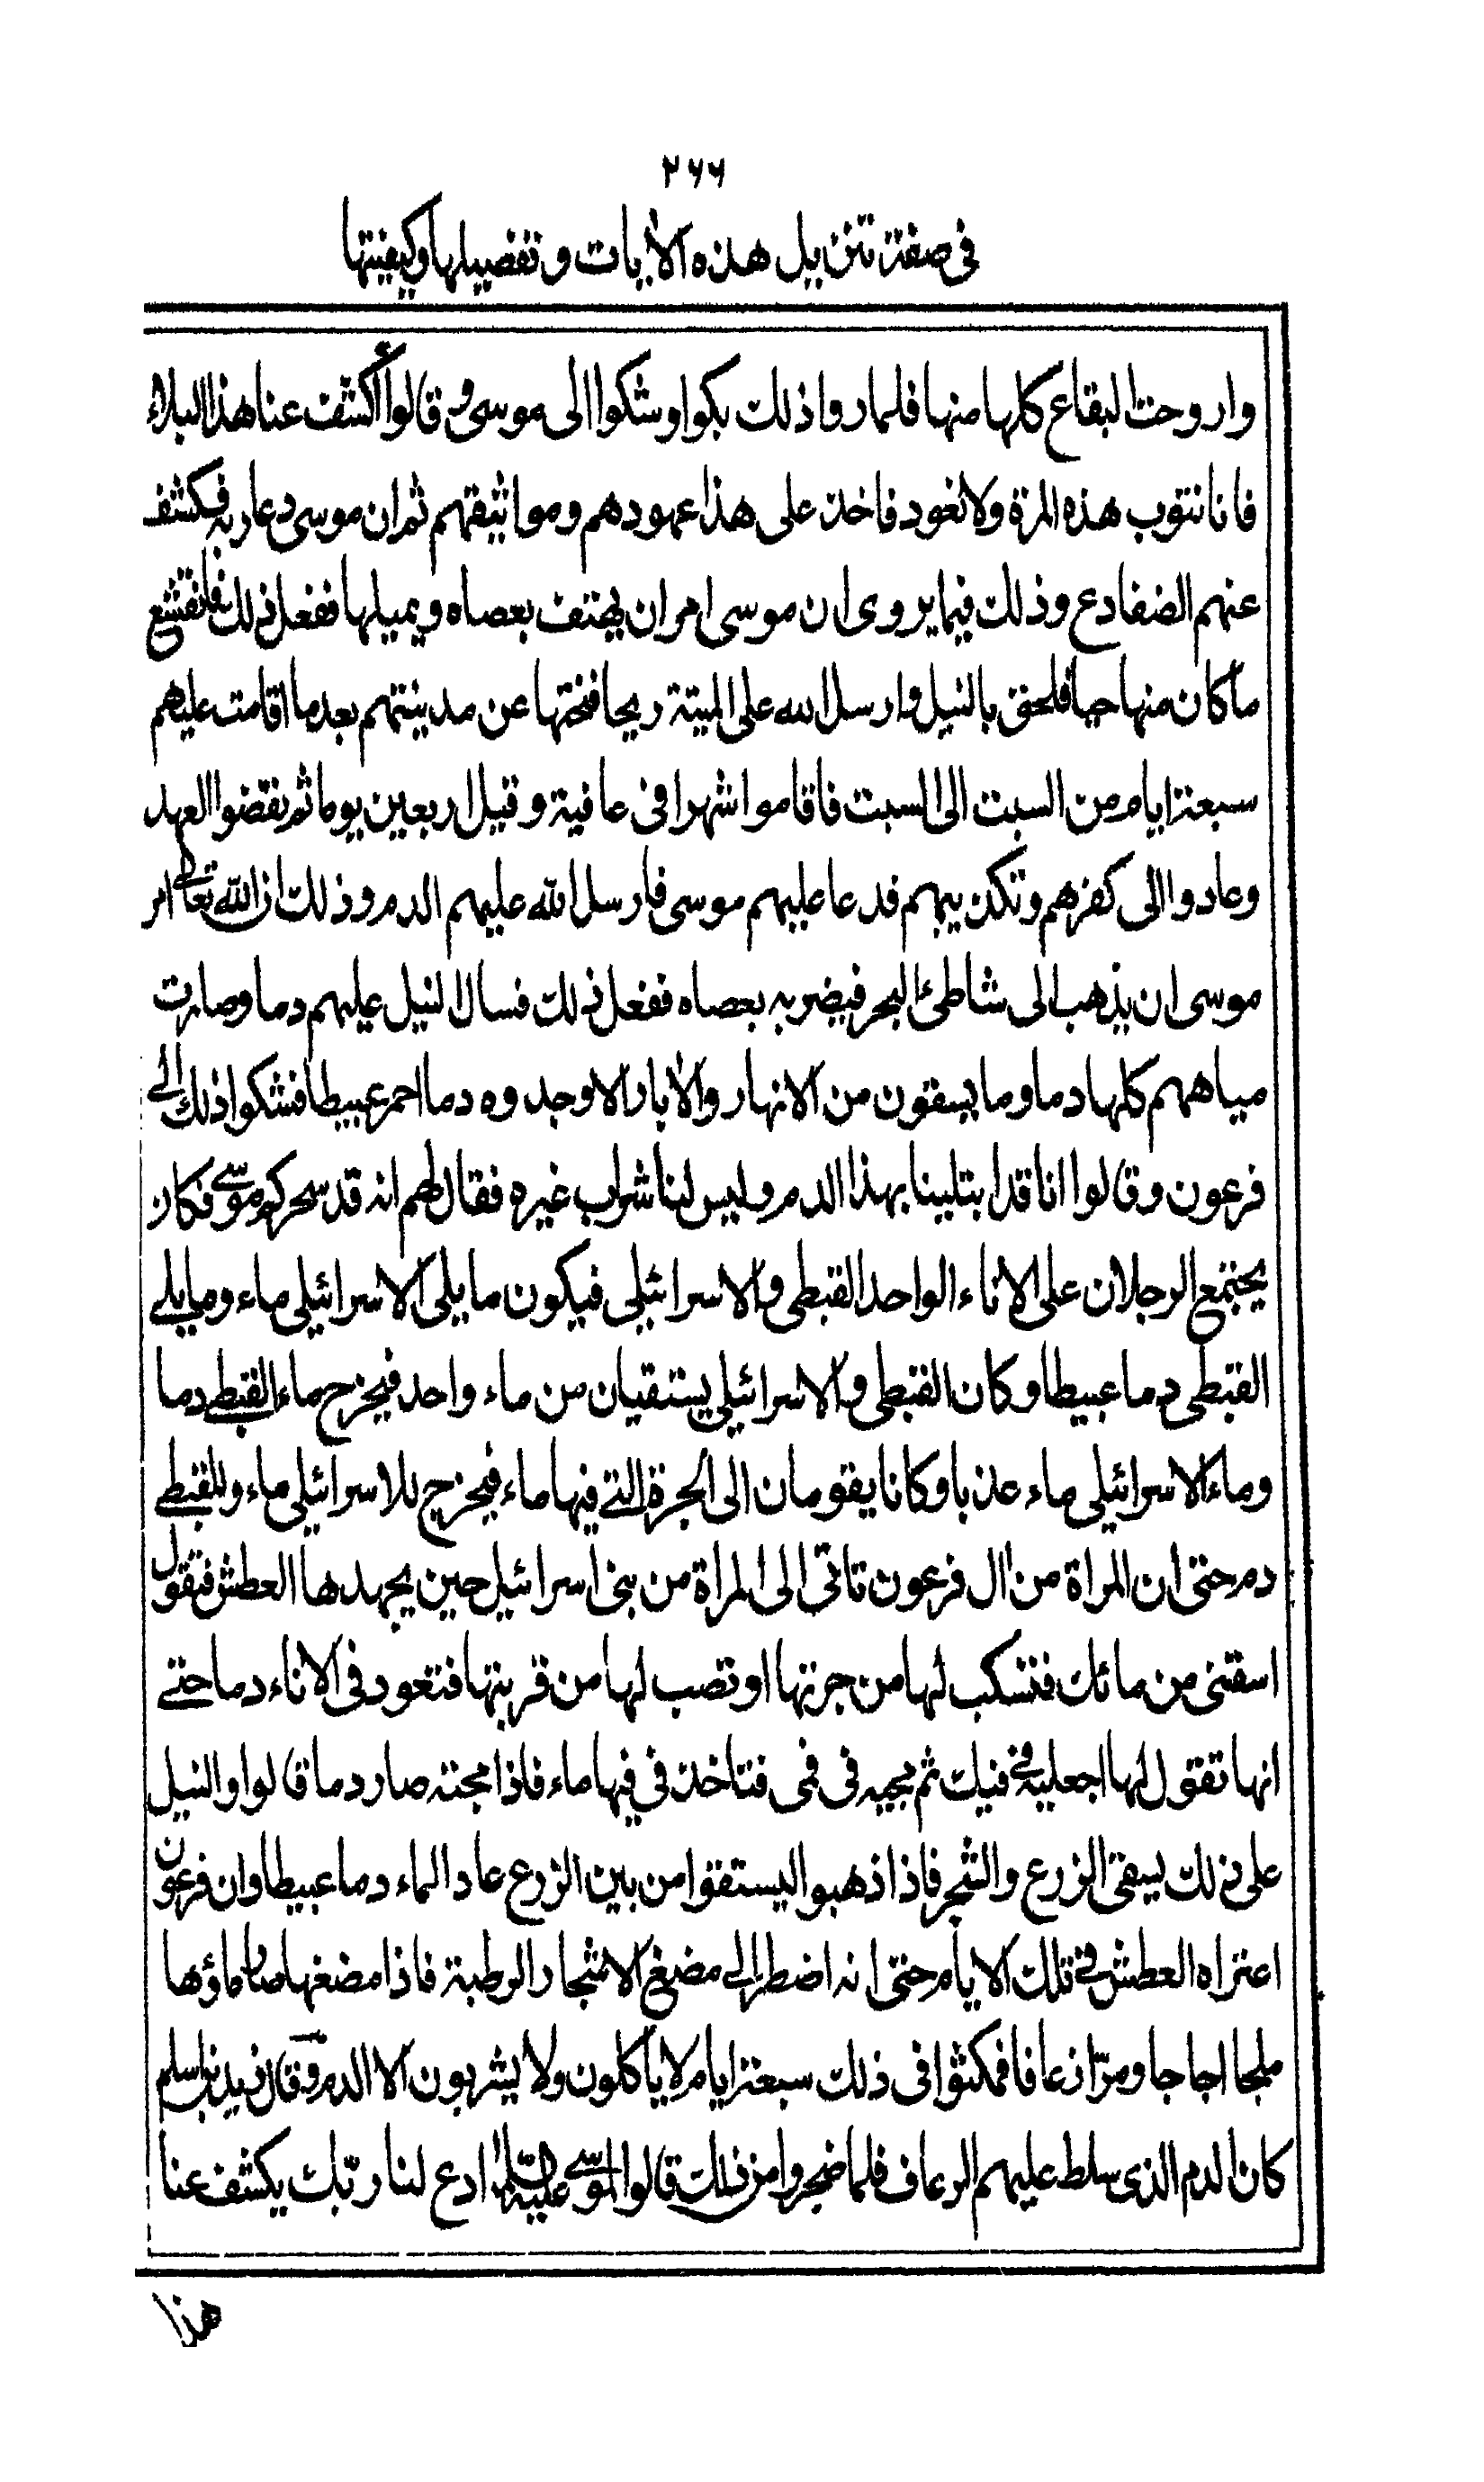 ٢٦٦
فى صفة تنزيل هذه الأيات وتفضيلها وكيفيتها
واروحت البقاع كلها منها فلما روا ذلك بكوا وشكوا الى موسى وقالوا اكشف عنا هذا البلاء
فانا نتوب هذه المرة ولا نعود فاخذ على هذا عهودهم ومواثيقهم ثم ان موسى دعا ربه فكشف
عنهم الضفادع وذلك فيما يروى ان موسى امر ان يهتف بعصاه ويميلها ففعل ذلك فانقشع
ما كان منها حيا فلحق بالنيل وارسل الله على الميتة ريحا فنحتها عن مدينتهم بعد ما اقامت عليهم
سبعة ايام من السبت الى السبت فاقاموا شهرا فى عافية وقيل اربعين يوما ثم نقضوا العهد
وعادوا الى كفرهم وتكذيبهم فدعا عليهم موسى فارسل الله عليهم الدم وذلك ان الله تعالى امر
موسى ان يذهب الى شاطئ البحر فيضربه بعصاه ففعل ذلك فسال النيل عليهم دما وصارت
مياههم كلها دما وما يسقون من الانهار والأبار الا وجدوه دما احمر عبيطا فشكوا ذلك الى
فرعون وقالوا انا قد ابتلينا بهذا الدم وليس لنا شراب غيره فقال لهم انه قد سحركم موسى فكان
يجتمع الرجلان على الاناء الواحد القبطى والاسرائيلى فيكون ما يلى الاسرائيلى ماء وما يلى
القبطى دما عبيطا وكان القبطى والاسرائيلى يستقيان من ماء واحد فيخرج ماء القبطى دما
وماء الاسرائيلى ماء عذبا وكانا يقومان الى الجرة التى فيها ماء فيخرج للاسرائيلى ماء وللقبطى
دم حتى ان المراة من ال فرعون تاتى الى المراة من بنى اسرائيل حين يجهدها العطش فتقول
اسقنى من مائك فتسكب لها من جرتها او تصب لها من قربتها فتعود فى الاناء دما حتى
انها تقول لها اجعليه فى فيك ثم مجيه فى فمى فتاخذ في فيها ماء فاذا مجته صار دما قالوا والنيل
على ذلك يسقى الزرع والشجر فاذا ذهبوا ليستقوا من بين الزرع عاد الماء دما عبيطا وان فرعون
اعتراه العطش فى تلك الايام حتى انه اضطر الى مضغ الاشجار الرطبة فاذا مضغها صار ماؤها
ملحا اجاجا ومرّا زعافا فمكثوا فى ذلك سبعة ايام لا ياكلون ولا يشربون الا الدم وقال زيد بن اسلم
كان الدم الذى سلط عليهم الرعاف فلما ضجروا من ذلك قالوا لموسى عليه السلام ادع لنا ربّك يكشف عنا
هذا